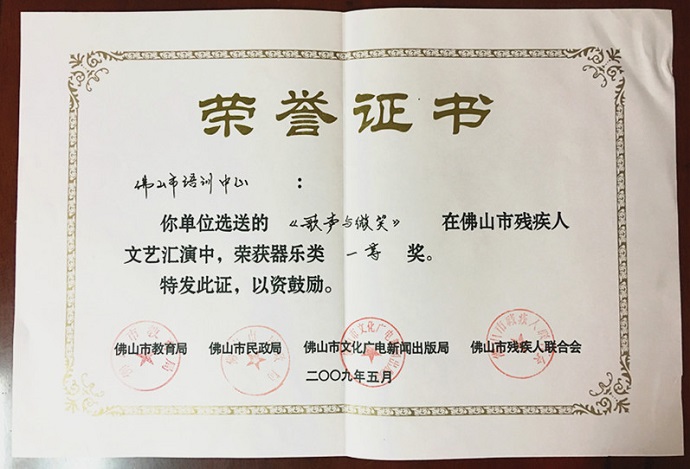 荣誉证书
佛山市培训中心：
你单位选送的《歌声与微笑》在佛山市残疾人
文艺汇演中，荣获器乐类一等奖。
特发此证，以资鼓励。
佛山市教育局 佛山市民政局 佛山市文化广电新闻出版局 佛山市残疾人联合会
二〇〇九年五月